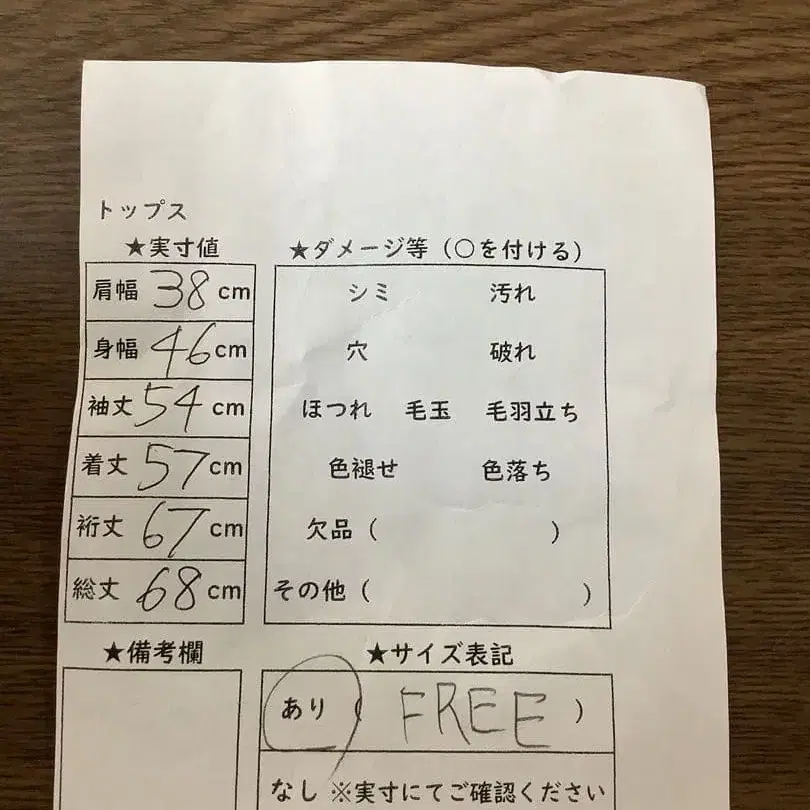 トップス
★実寸値
肩幅 38 cm
身幅 46 cm
袖丈 54 cm
着丈 57 cm
裄丈 67 cm
総丈 68 cm
★ダメージ等（○を付ける）
シミ 汚れ
穴 破れ
ほつれ 毛玉 毛羽立ち
色褪せ 色落ち
欠品（ ）
その他（ ）
★備考欄
★サイズ表記
あり（ FREE ）
なし ※実寸にてご確認ください